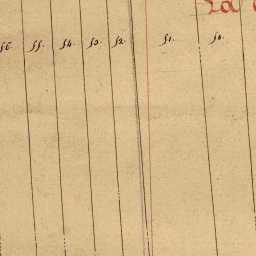 La
56. 55. 54. 53. 52. 51. 50.